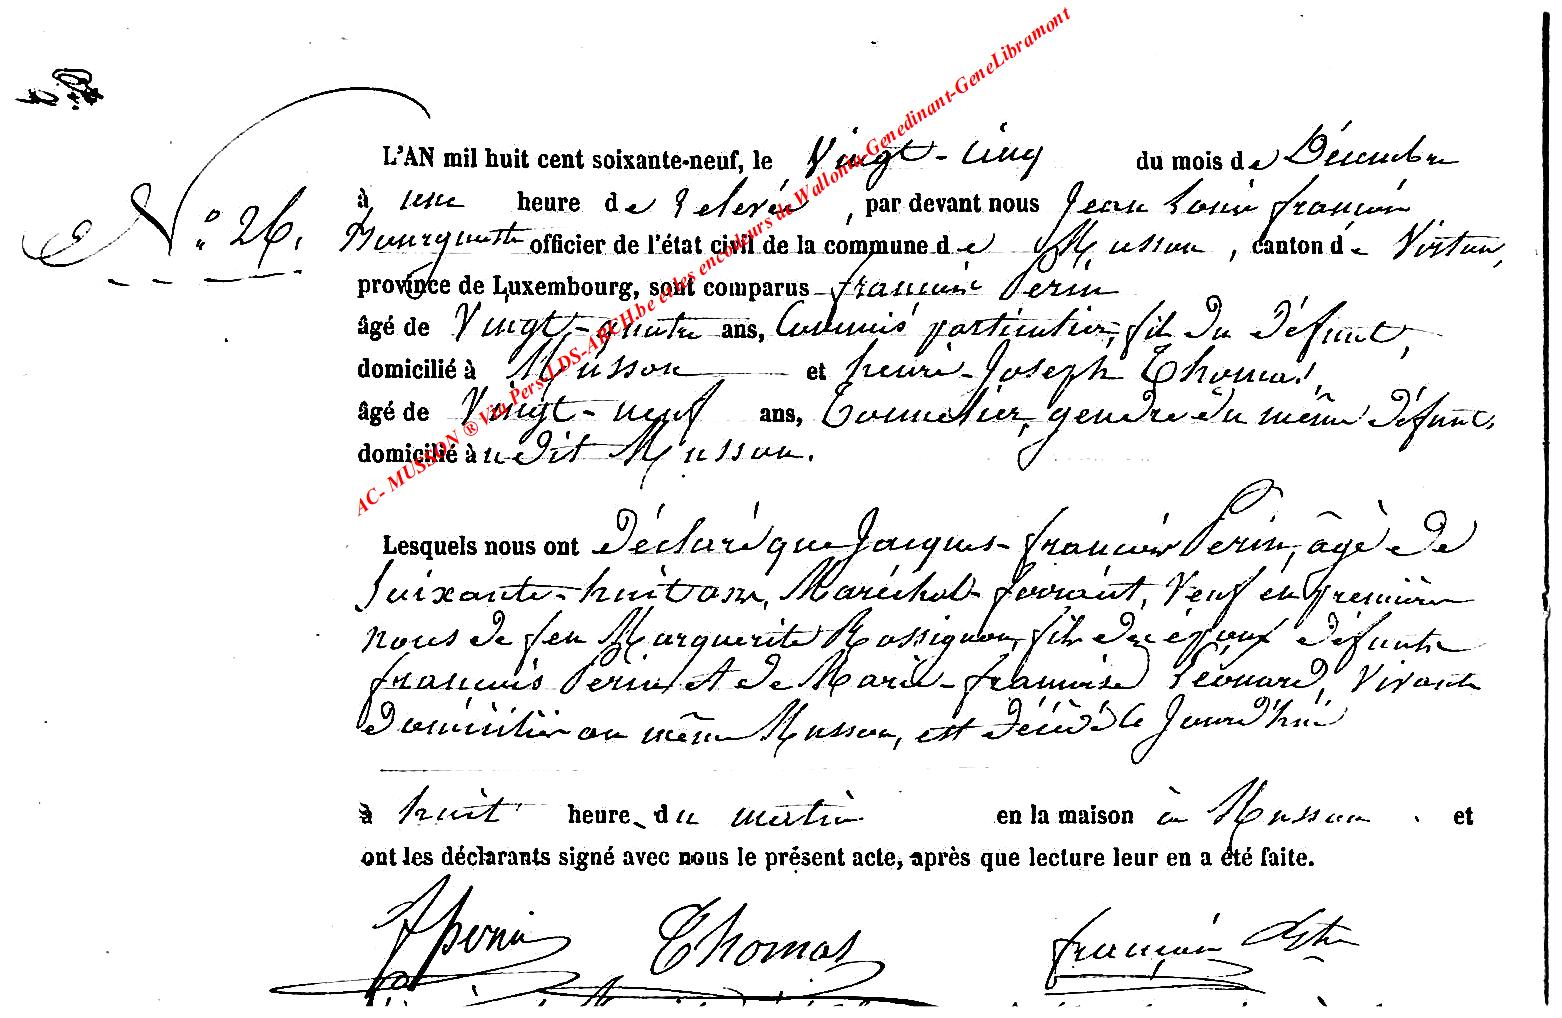 N° 26.
L'AN mil huit cent soixante-neuf, le Vingt-cinq du mois de Décembre
à une heure de relevée, par devant nous Jean Louis françois
officier de l'état civil de la commune de Musson, canton de Virton,
province de Luxembourg, sont comparus françois Perin
âgé de Vingt-quatre ans, Commis particulier, fils du défunt,
domicilié à Musson et henri-Joseph Thomas,
âgé de Vingt-neuf ans, Tonnelier, gendre du même défunt,
domicilié àu dit Musson.
Lesquels nous ont déclaré que Jacques-françois Perin, âgé de
Soixante-huit ans, Maréchal-ferrant, Veuf en première
nous de feu Marguerite Rossignon, fils des époux défunts
françois Perin et de Marie-françoise Léonard, Vivants
domiciliés au même Musson, est décédé le Jourd'hui
à huit heure du matin en la maison à Musson. et
ont les déclarants signé avec nous le présent acte, après que lecture leur en a été faite.
Perin Thomas françois
AC- MUSSON ® Via Pers-LDS-ARCH.be et les encodeurs de Wallonia-Genedinant-GeneLibramont